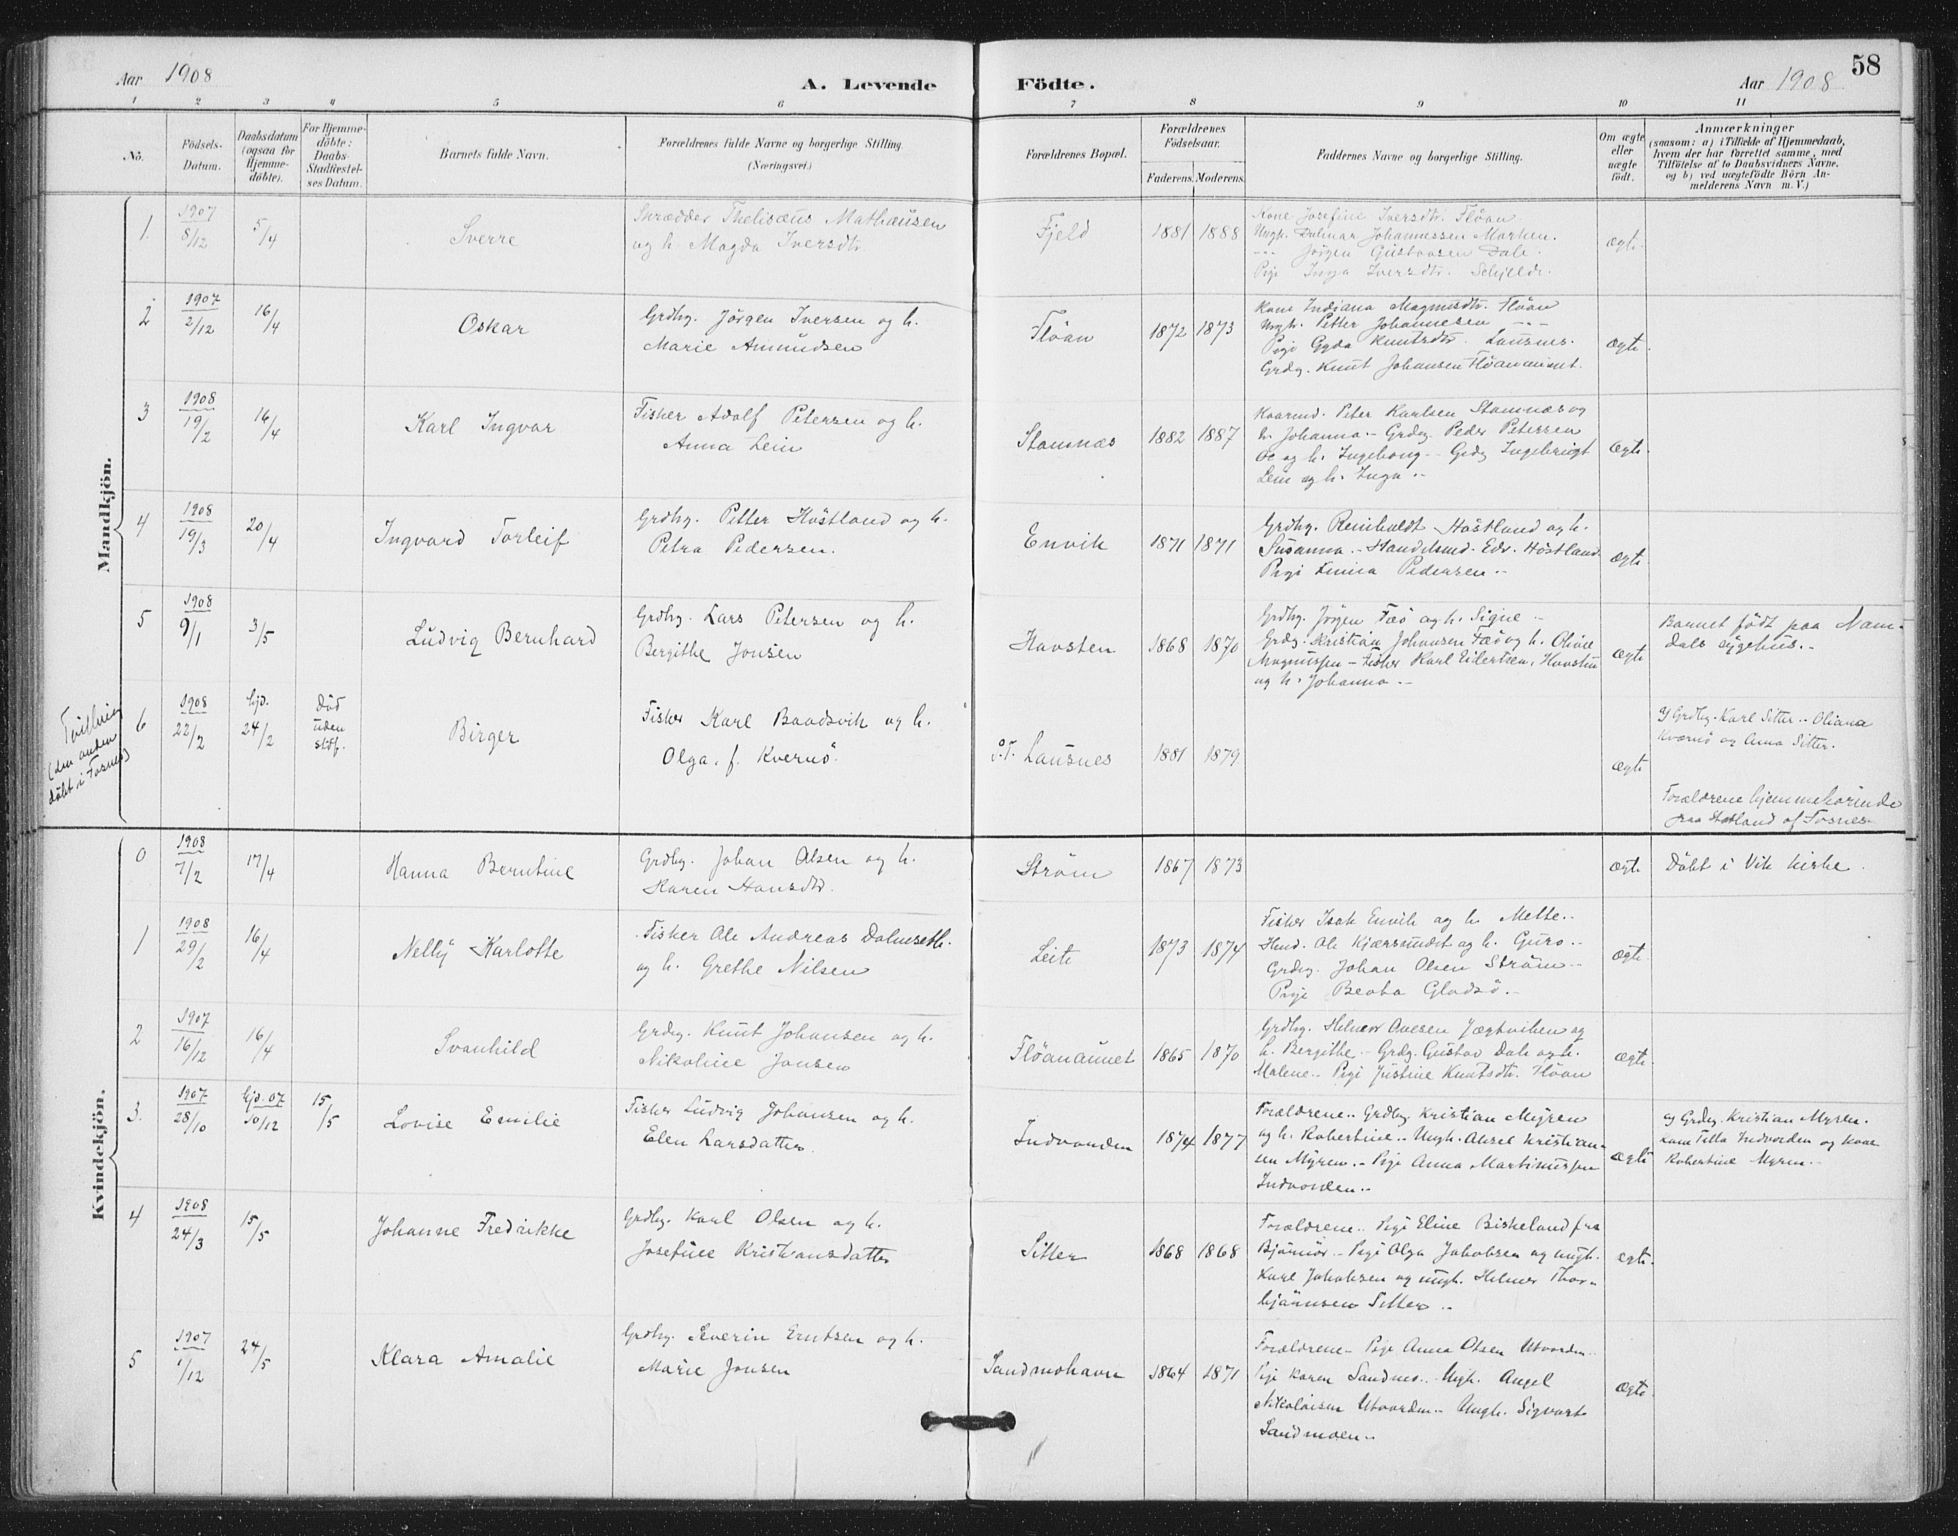 58
Aar 1908
A. Levende
Födte.
Aar 1908
1 2 3 4 5 6 7 8 9 10 11
No.
Födsels-
Datum.
Daabsdatum
(ogsaa for
Hjemme-
döbte).
For Hjemme-
döbte:
Daabs-
Stadfæstel-
ses Datum.
Barnets fulde Navn.
Forældrenes fulde Navne og borgerlige Stilling.
(Næringsvei.)
Forældrenes Bopæl.
Forældrenes
Födselsaar.
Faderens. Moderens.
Faddernes Navne og borgerlige Stilling.
Om ægte
eller
uægte
födt.
Anmærkninger
(saasom: a) i Tilfælde af Hjemmedaab,
hvem der har forrettet samme, med
Tilföielse af to Daabsvidners Navne,
og b) ved uægtefödte Börn An-
melderens Navn m. V.)
Mandkjön.
1. 1907 8/12 5/4 Sverre
Skrædder Mathausen
og h. Magda Iversdtr.
Fjeld 1881 1888
Kone Josefine Iversdtr. Flöan
Ungk. Johannessen Marken.
-"- Jörgen Gustavsen Dale.
Pige Inga Iversdtr.
ægte
2 1907 2/12 16/4 Oskar
Grdbg. Jörgen Iversen og h.
Marie Amundsen
Flöan 1872 1873
Kone Indiana Magnusdtr. Flöan
Ungk. Petter Johannesen -"-
Pige Gyda Knutsdtr. Lausnes.
Grdbg. Knut Johansen Flöanaunet.
ægte
3 1908 19/2 16/4 Karl Ingvar
Fisker Adolf Petersen og h.
Anna Lein
Stamnæs 1882 1887
Kaarmd. Peter Karlsen Stamnæs og
h. Johanna.- Grdbg. Peder Petersen
og h. Ingeborg - Grdbg Ingebrigt
Lein og h. Inga.-
ægte
4 1908 19/3 20/4 Ingvard Torleif
Grdbg. Petter Höstland og h.
Petra Pedersen.
Envik 1871 1871
Grdbg. Reinholdt Höstland og h.
Susanna.- Handelsmd. Edv. Höstland.
Pige Pedersen.-
ægte
5 1908 9/1 3/5 Ludvig Bernhard
Grdbg. Lars Petersen og h.
Bergithe Jonsen
Havsten 1868 1870
Grdbg. Jörgen Faö og h. Signe -
Grdbg. Kristian Johansen Faö og h. Olivie
Magnussen - Fisker Karl Eilertsen, Havsten
og h. Johanna.-
ægte
Barnet födt paa Nam-
dals sygehus.-
Tvilling
(den anden
döbt i Fosnes)
6 1908 22/2 hjd. 24/2 Död uden stdf. Birger
Fisker Karl Baadsvik og h.
Olga, f. Kvernö.
p.T. Lausnes 1881 1879
ægte
Grdbg. Karl Sitter.- Oliana
Kvernö og Anna Sitter.
Forældrene hjemmehörende
paa Statland af Fosnes.
Kvindekjön.
0 1908 7/2 17/4 Hanna Berntine
Grdbg. Johan Olsen og h.
Karen Hansdtr.
Ström 1867 1873
ægte
Döbt i Vik kirke.
1 1908 29/2 16/4 Nelly Karlotte
Fisker Ole Andreas Dalmseth
og h. Grethe Nilsen
Leite 1873 1874
Fisker Isak Envik og h. Mette.-
Ole Kjærsundet og h. Guro.-
Grdbg. Johan Olsen Ström.-
Pige Beata Gladsö.-
ægte
2 1907 16/12 16/4 Svanhild
Grdbg. Knut Johansen og h.
Nikoline Jonsen
Flöanaunet 1865 1870
Grdbg. Helmer Jægtviken og
h. Bergithe - Grdbg. Gustav Dale og h.
Malene.- Pige Justine Knutsdtr. Flöan
ægte
3. 1907 28/10 hjd. 07 10/12 15/5 Lovise Emilie
Fisker Ludvig Johansen og h.
Elen Larsdatter.
Indvorden 1874 1877
Forældrene.- Grdbg Kristian Myren
og h. Robertine.- Ungk. Aksel Kristian-
sen Myren.- Pige Anna Martinussen
Indvorden.-
ægte
Grdbg. Kristian Myren.
Indvorden og Kone
Robertine Myren.-
4 1908 24/3 15/5 Johanne Fredrikke
Grdbg. Karl Olsen og h.
Josefine Kristiansdatter
Sitter 1868 1868
Forældrene.- Pige Eline Biskeland fra
Björnör.- Pige Olga Jakobsen og ungk.
Karl Jakobsen og ungk. Helmer Thor-
björnsen Sitter.-
ægte
5 1907 1/12 24/5 Klara Amalie
Grdbg. Severin Erntsen og h.
Marie Jonsen
Sandmohavn 1864 1871
Forældrene - Pige Anna Olsen Utvorden.-
Pige Karen Sandnes.- Ungk. Angel
Nikolaisen Utvorden.- Ungk. Sigvart
Sandmoen.-
ægte